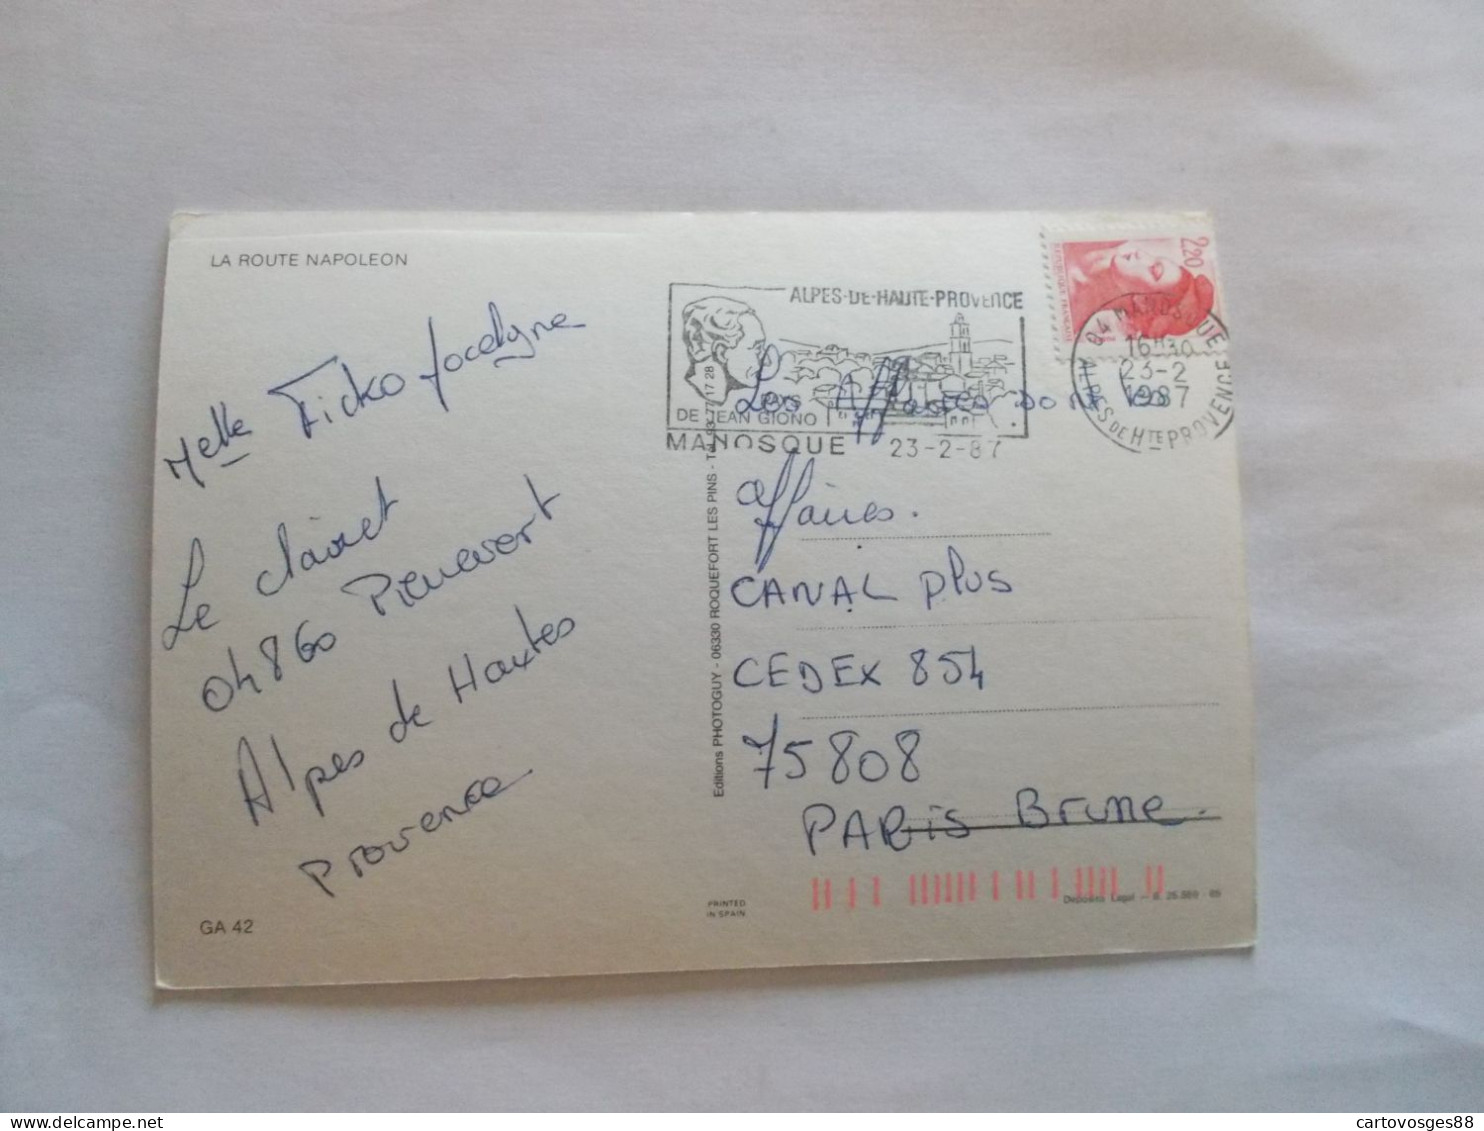 LA ROUTE NAPOLEON
Melle Ticko Jocelyne
Le clairet
04860 Pierrevert
Alpes de Hautes
Provence
GA 42
ALPES-DE-HAUTE-PROVENCE
PAYS
DE JEAN GIONO
MANOSQUE 23-2-87
2,20
REPUBLIQUE FRANCAISE
04 MANOSQUE
16H30
23-2
1987
ALPES DE HTE PROVENCE
Les Affaires sont les
affaires.
CANAL plus
CEDEX 854
75808
PARis Brune.
Editions PHOTOGUY - 06330 ROQUEFORT LES PINS - Tél. 93.77.17.28
PRINTED
IN SPAIN
cartovosges88